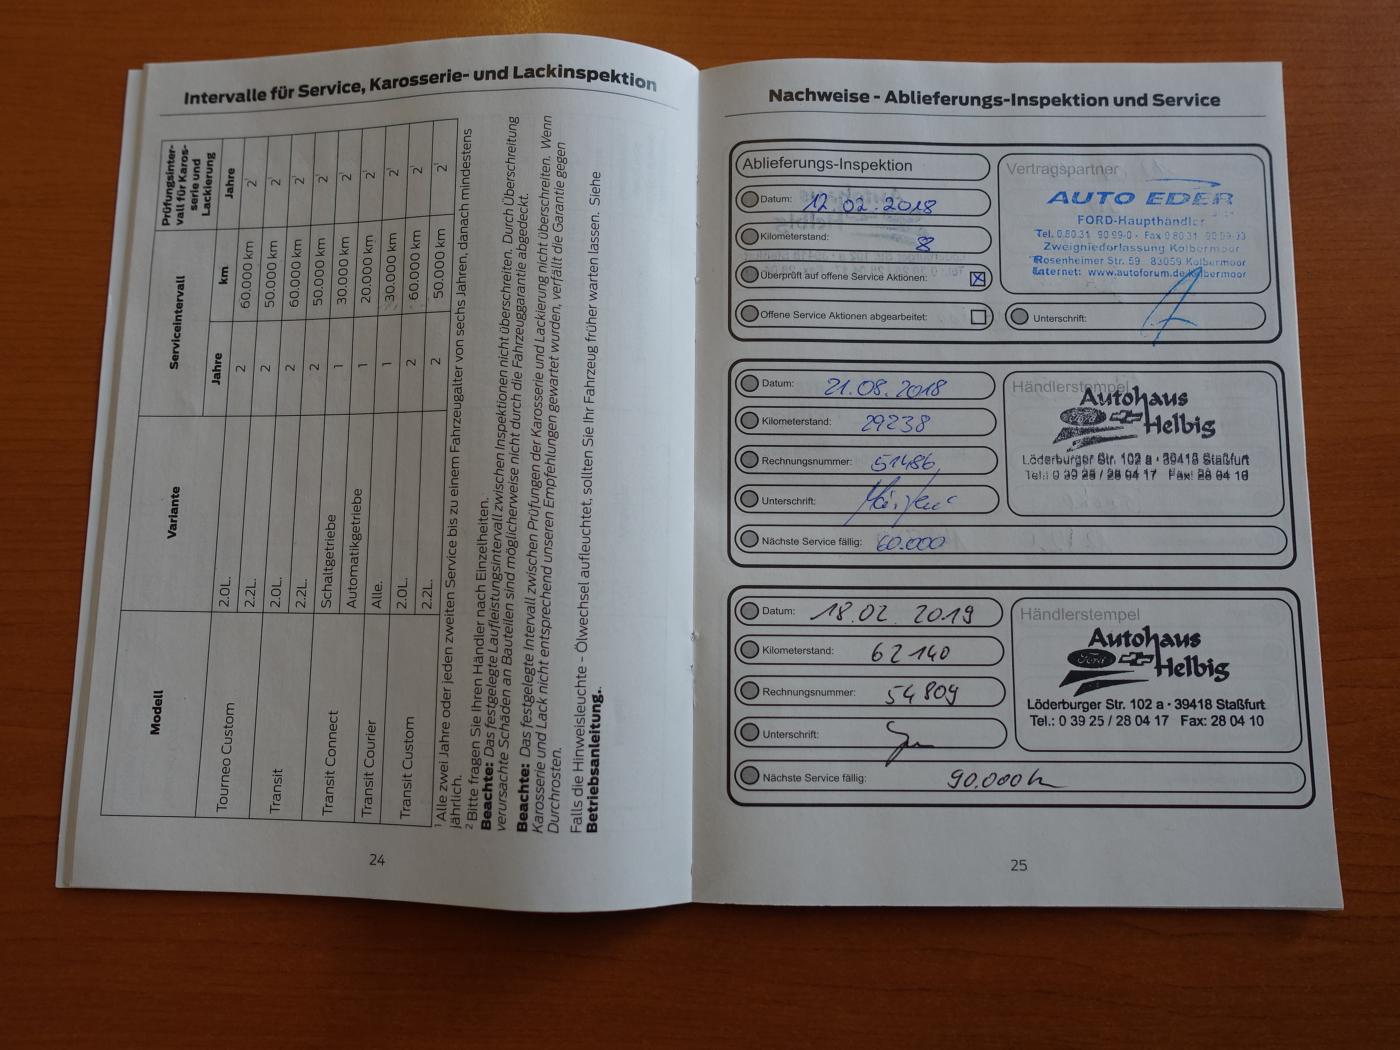 Intervalle für Service, Karosserie- und Lackinspektion
Modell
Variante
Serviceinterval
Prüfungsinter-
vall für Karos-
serie und
Lackierung
Jahre
km
Jahre
Tourneo Custom
2.0L.
2
60.000 km
2¹
2.2L.
2
50.000 km
2¹
Transit
2.0L.
2
60.000 km
2¹
2.2L.
2
50.000 km
2¹
Transit Connect
Schaltgetriebe
1
30.000 km
2¹
Automatikgetriebe
1
20.000 km
2¹
Transit Courier
Alle.
1
30.000 km
2¹
Transit Custom
2.0L.
2
60.000 km
2¹
2.2L.
2
50.000 km
2¹
¹ Alle zwei Jahre oder jeden zweiten Service bis zu einem Fahrzeugalter von sechs Jahren, danach mindestens
jährlich.
² Bitte fragen Sie Ihren Händler nach Einzelheiten.
Beachte: Das festgelegte Laufleistungsintervall zwischen Inspektionen nicht überschreiten. Durch Überschreitung
verursachte Schäden an Bauteilen sind möglicherweise nicht durch die Fahrzeuggarantie abgedeckt.
Beachte: Das festgelegte Intervall zwischen Prüfungen der Karosserie und Lackierung nicht überschreiten. Wenn
Karosserie und Lack nicht entsprechend unseren Empfehlungen gewartet wurden, verfällt die Garantie gegen
Durchrosten.
Falls die Hinweisleuchte - Ölwechsel aufleuchtet, sollten Sie Ihr Fahrzeug früher warten lassen. Siehe
Betriebsanleitung.
24
Nachweise - Ablieferungs-Inspektion und Service
Ablieferungs-Inspektion
Datum: 12.02.2018
Kilometerstand: 8
Überprüft auf offene Service Aktionen:
Offene Service Aktionen abgearbeitet:
Vertragspartner
AUTO EDER
FORD-Haupthändler
Tel. 0 80 31 90 99-0 · Fax 0 80 31 90 99-33
Zweigniederlassung Kolbermoor
Rosenheimer Str. 59 83059 Kolbermoor
Internet: www.autoforum.de/kolbermoor
Unterschrift:
Datum: 21.08.2018
Kilometerstand: 29238
Rechnungsnummer: 51486
Unterschrift:
Nächste Service fällig: 60.000
Händlerstempel
Autohaus
Ford
Helbig
Löderburger Str. 102 a · 39418 Staßfurt
Tel.: 0 39 25 / 28 04 17 Fax: 28 04 10
Datum: 18.02. 2019
Kilometerstand: 62 140
Rechnungsnummer: 54809
Unterschrift:
Nächste Service fällig: 90.000 km
Händlerstempel
Autohaus
Ford
Helbig
Löderburger Str. 102 a · 39418 Staßfurt
Tel.: 0 39 25 / 28 04 17 Fax: 28 04 10
25